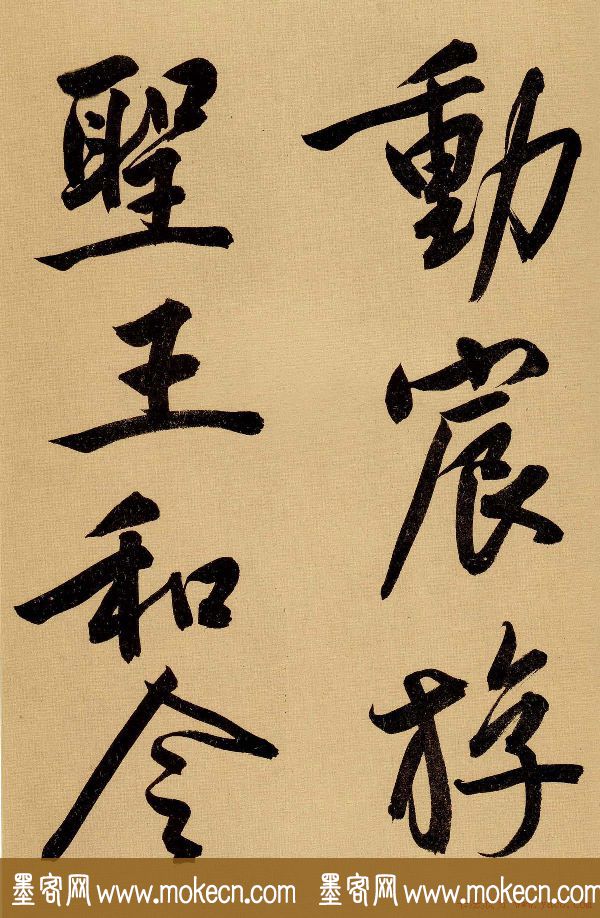 動宸游
聖王和令
墨客网 www.mokecn.com 墨客网 www.mokecn.com